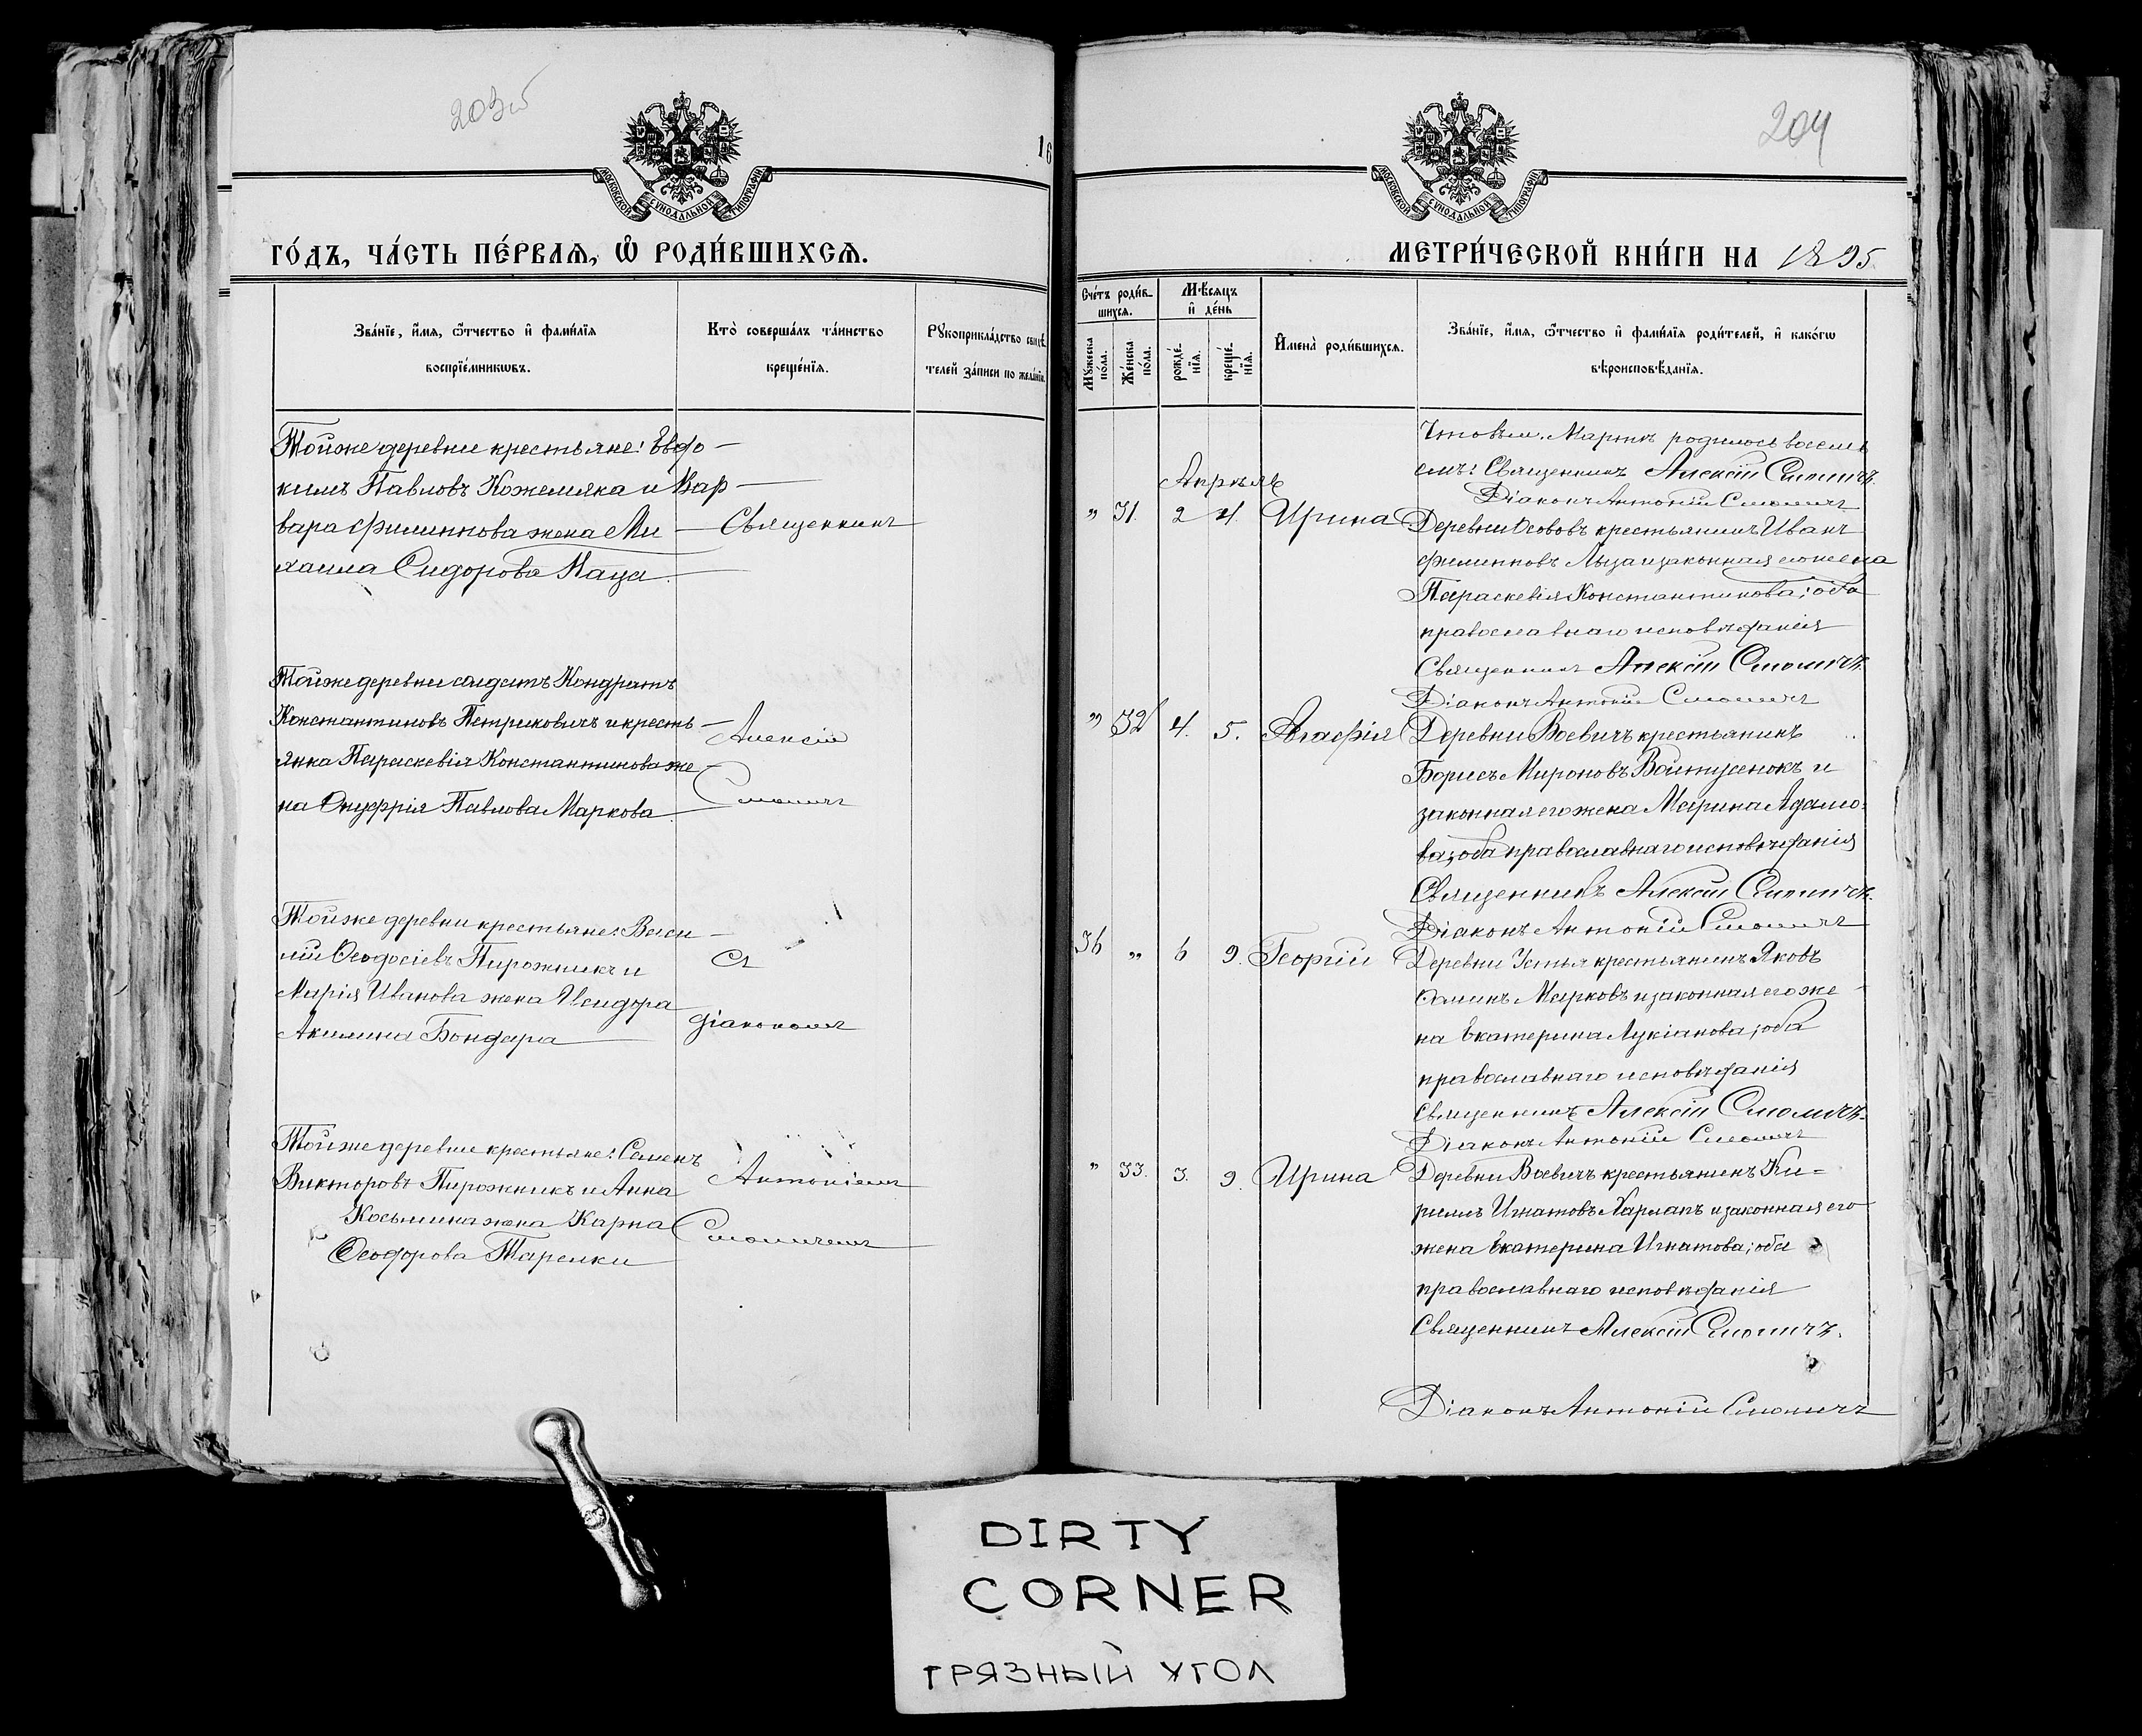 203об
16
МОСКОВСКОЙ СѴНОДАЛЬНОЙ ТИПОГРАФІИ
ГО́ДЪ, ЧА́СТЬ ПЕ́РВАЯ, Ѽ РОДИ́ВШИХСЯ.
Зва́нїе, и҆́мя, ѻ҆́тчество и҆ фами́лїя
воспрїе́мникѡвъ.
Кто̀ соверша́лъ та́инство
креще́нїя.
Рꙋкоприкла́дство свидѣ́-
телей за́писи по жела́нїю.
Тойже деревни крестьяне: Евдо-
кимъ Павловъ Кожемяка и Вар-
вара Филиппова жена Ми-
хаила Сидорова Каца
Священникъ
Тойже деревни солдатъ Кондратъ
Константиновъ Петриковичъ и кресть-
янка Параскевія Константинова же-
на Онуфрія Павлова Маркова
Алексій
Смоличъ
Тойже деревни крестьяне: Васи-
лій Ѳеодосіевъ Пирожникъ и
Марія Иванова жена Исидора
Акилина Бондара
Съ
діакономъ
Тойже деревни крестьяне: Семенъ
Викторовъ Пирожникъ и Анна
Косьмина жена Карпа
Ѳеодорова Тарелки
Антоніемъ
Смоличемъ
204
МОСКОВСКОЙ СѴНОДАЛЬНОЙ ТИПОГРАФІИ
МЕТРИ́ЧЕСКОЙ КНИ́ГИ НА 1895
Сче́тъ роди́в-
шихся.
Мꙋ́жеска по́ла.
Же́нска по́ла.
Мѣ́сяцъ
и҆ де́нь
рожде́-нїя.
креще́-нїя.
И҆мена̀ роди́вшихся.
Зва́нїе, и҆́мя, ѻ҆́тчество и҆ фами́лїя роди́телей, и҆ како́гѡ
вѣроисповѣ́данїя.
Мартѣ родилось восемь
Священникъ Алексій Смоличъ.
Діаконъ Антоній Смоличъ
Апрѣль
" 31. 2 4. Ирина
Деревни Осововъ крестьянинъ Иванъ
Филипповъ Лыза и законная его жена
Параскевія Константинова; оба
православнаго исповѣданія
Священникъ Алексій Смоличъ
Діаконъ Антоній Смоличъ
" 32 4. 5. Агафія
Деревни Воевичъ крестьянинъ
Борисъ Мироновъ Войтусенокъ и
законная его жена Марина Адамо-
ва; оба православнаго исповѣданія
Священникъ Алексій Смоличъ.
Діаконъ Антоній Смоличъ
36 " 6 9. Георгій
Деревни Устья крестьянинъ Яковъ
Ѳоминъ Марковъ и законная его же-
на Екатерина Лукіанова; оба
православнаго исповѣданія
Священникъ Алексій Смоличъ.
Діаконъ Антоній Смоличъ
" 33. 3. 9. Ирина
Деревни Воевичъ крестьянинъ Ки-
риллъ Игнатовъ Харланъ и законная его
жена Екатерина Игнатова; оба
православнаго исповѣданія
Священникъ Алексій Смоличъ.
Діаконъ Антоній Смоличъ
DIRTY
CORNER
ГРЯЗНЫЙ УГОЛ